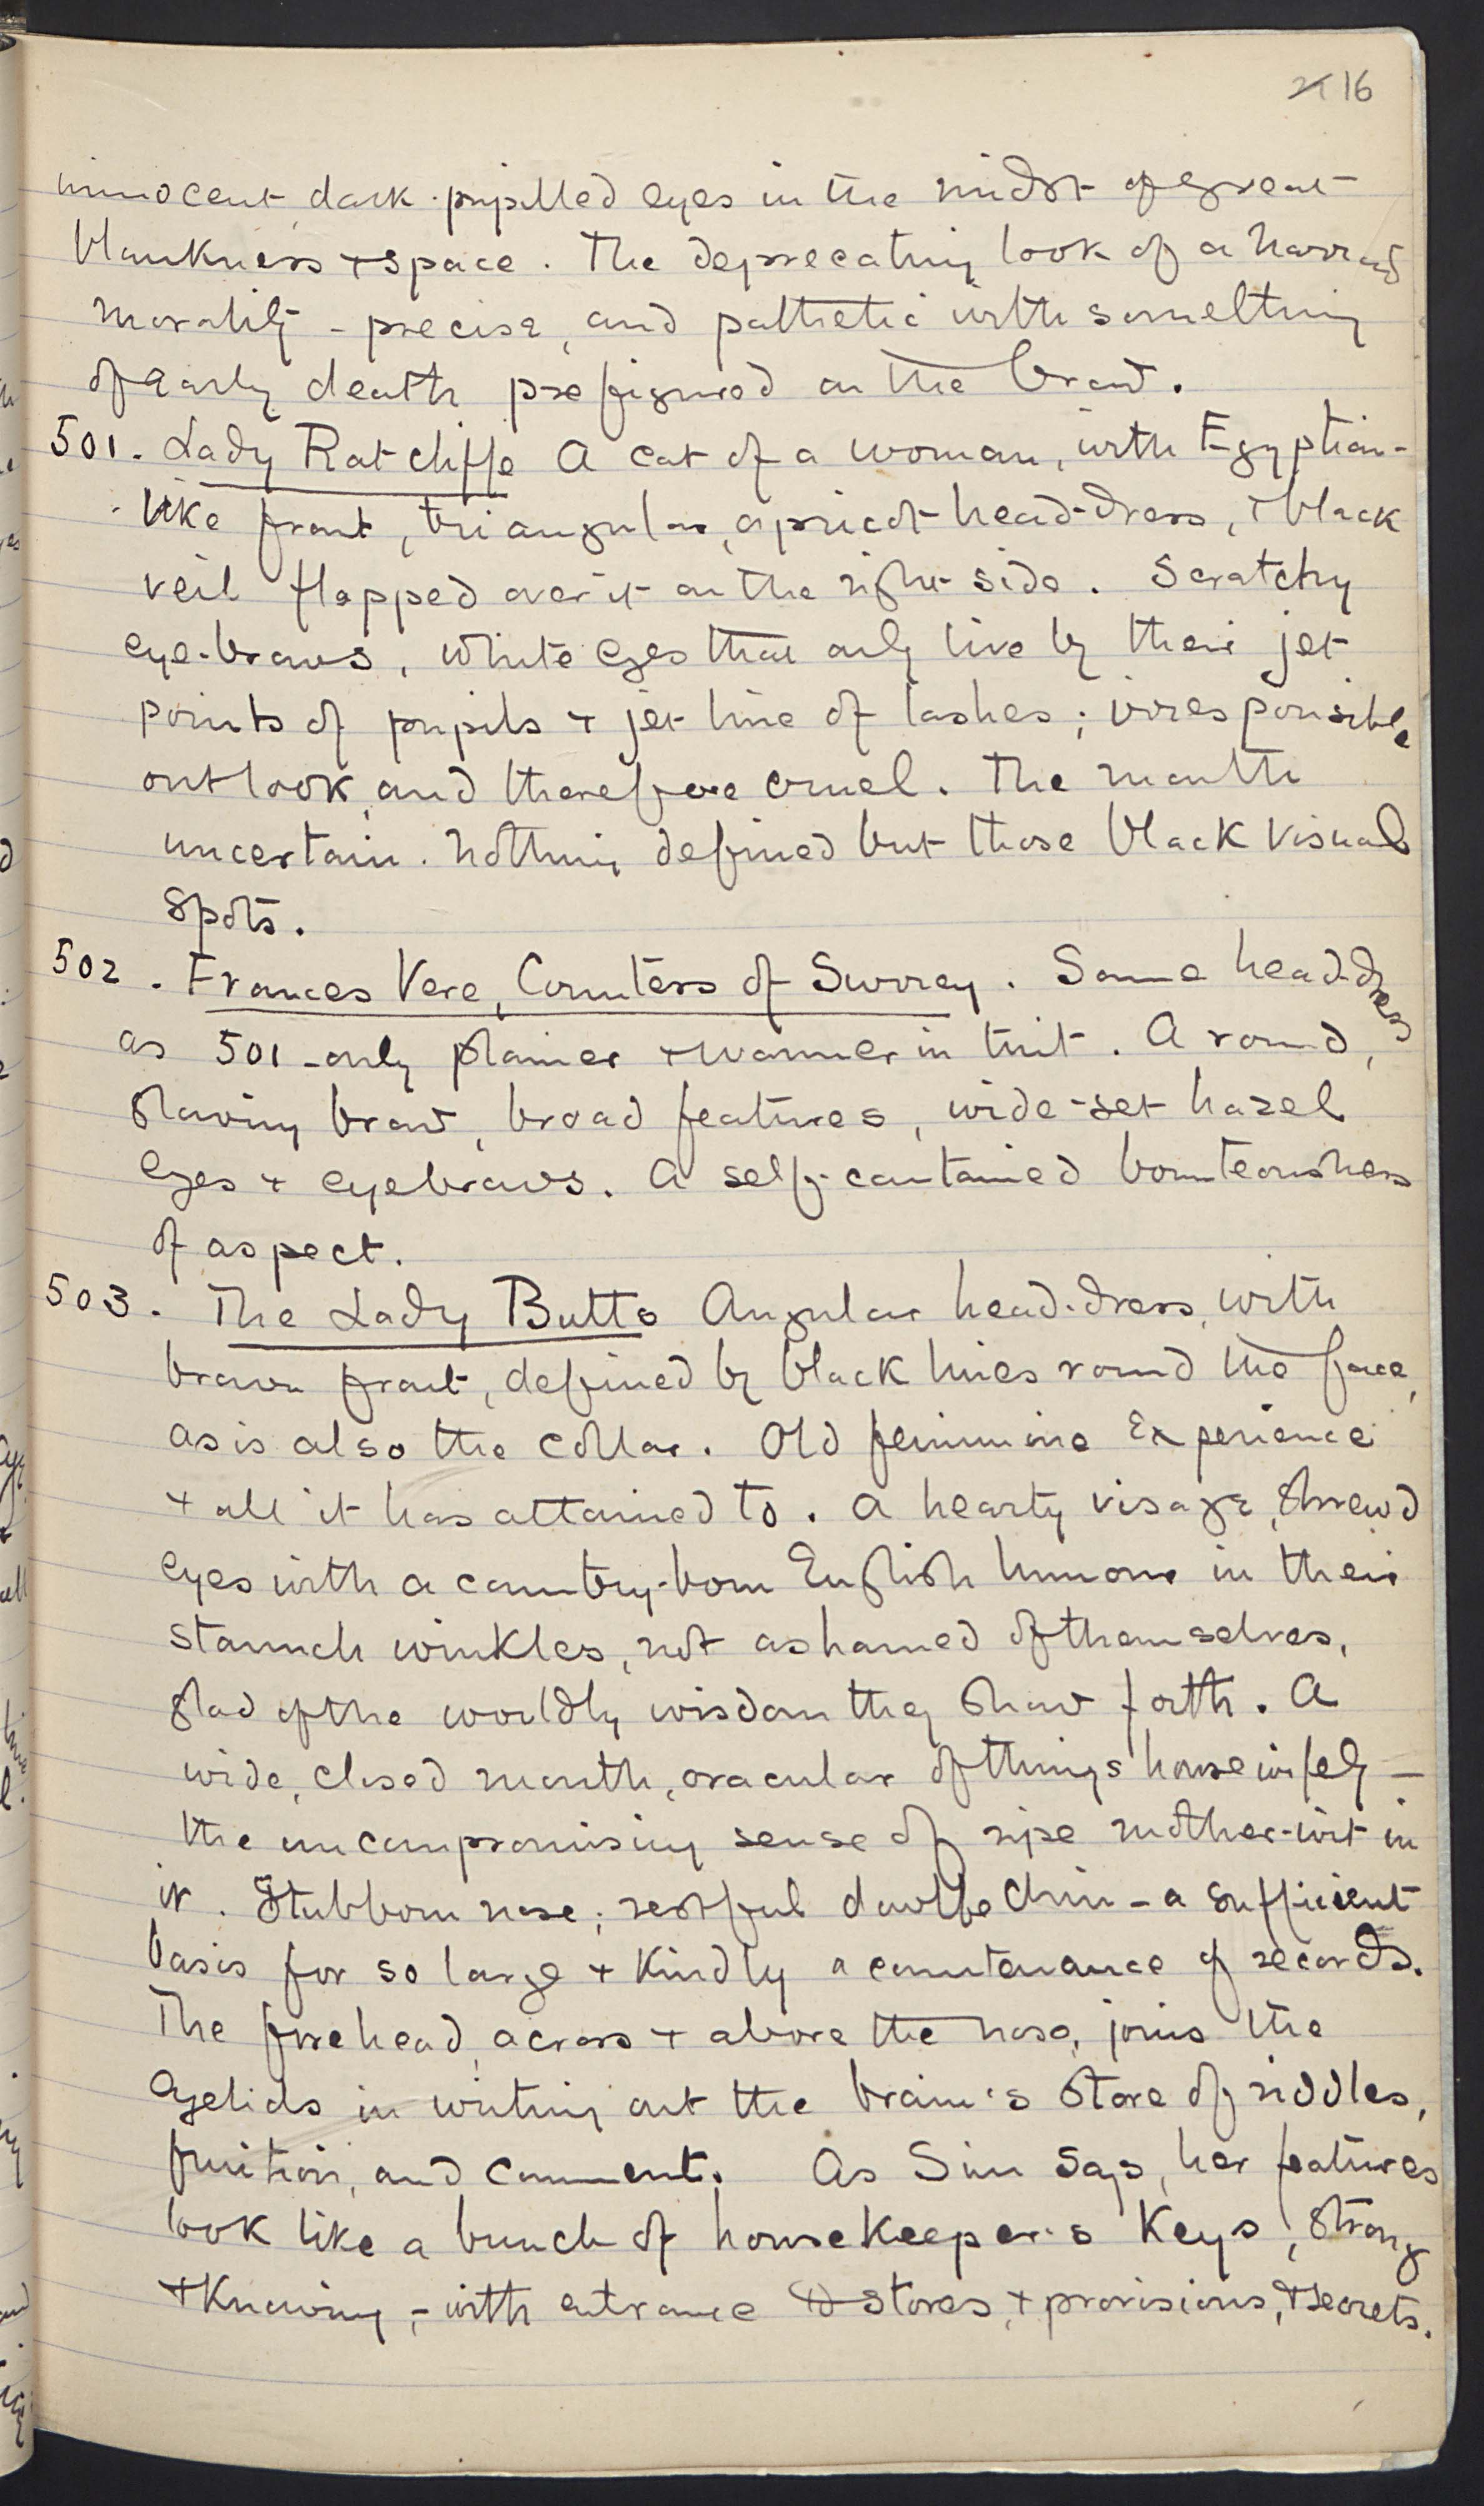 16
innocent dark-pupilled eyes in the midst of great
blankness + space. The deprecating look of a narrow
morality - precise, and pathetic with something
of early death prefigured on the brow.
501. Lady Ratcliffe A cat of a woman, with Egyptian-
like front, triangular, apricot head-dress, + black
veil flapped over it on the right side. Scratchy
eye-brows, white eyes that only live by their jet
points of pupils + jet line of lashes; irresponsible
outlook, and therefore cruel. The mouth
uncertain. Nothing defined but those black visual
spots.
502. Frances Vere, Countess of Surrey. Same head-dress
as 501 - only plainer + warmer in tint. A round,
glowing brow, broad features, wide-set hazel
eyes + eyebrows. A self-contained bounteousness
of aspect.
503. The Lady Butts Angular head-dress, with
brown front, defined by black lines round the face,
as is also the collar. Old feminine Experience
+ all it has attained to. A hearty visage, shrewd
eyes with a country-born English humour in their
staunch wrinkles, not ashamed of themselves,
glad of the worldly wisdom they show forth. A
wide, closed mouth, oracular of things housewifely -
the uncompromising sense of ripe mother-wit in
it. Stubborn nose; restful double chin - a sufficient
basis for so large + kindly a countenance of records.
The forehead, across + above the nose, joins the
eyelids in writing out the brain's store of riddles,
fruition, and comment. As Sim says, her features
look like a bunch of housekeeper's Keys, strong
+ Knowing, - with entrance to stores, + provisions, + secrets.